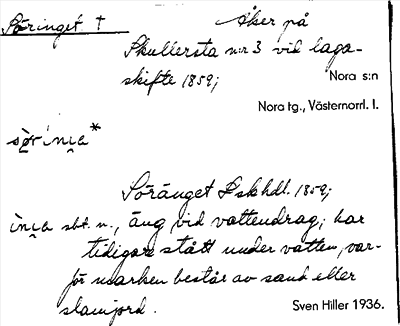 Söringet †
Åker på
Skullersta nr 3 vid laga-
skifte 1859;
Nora s:n
Nora tg., Västernorrl. l.
Söränget Lskhdl. 1859;
sbt. n., äng vid vattendrag; har
tidigare stått under vatten, var-
för marken består av sand eller
slamjord.
Sven Hiller 1936.